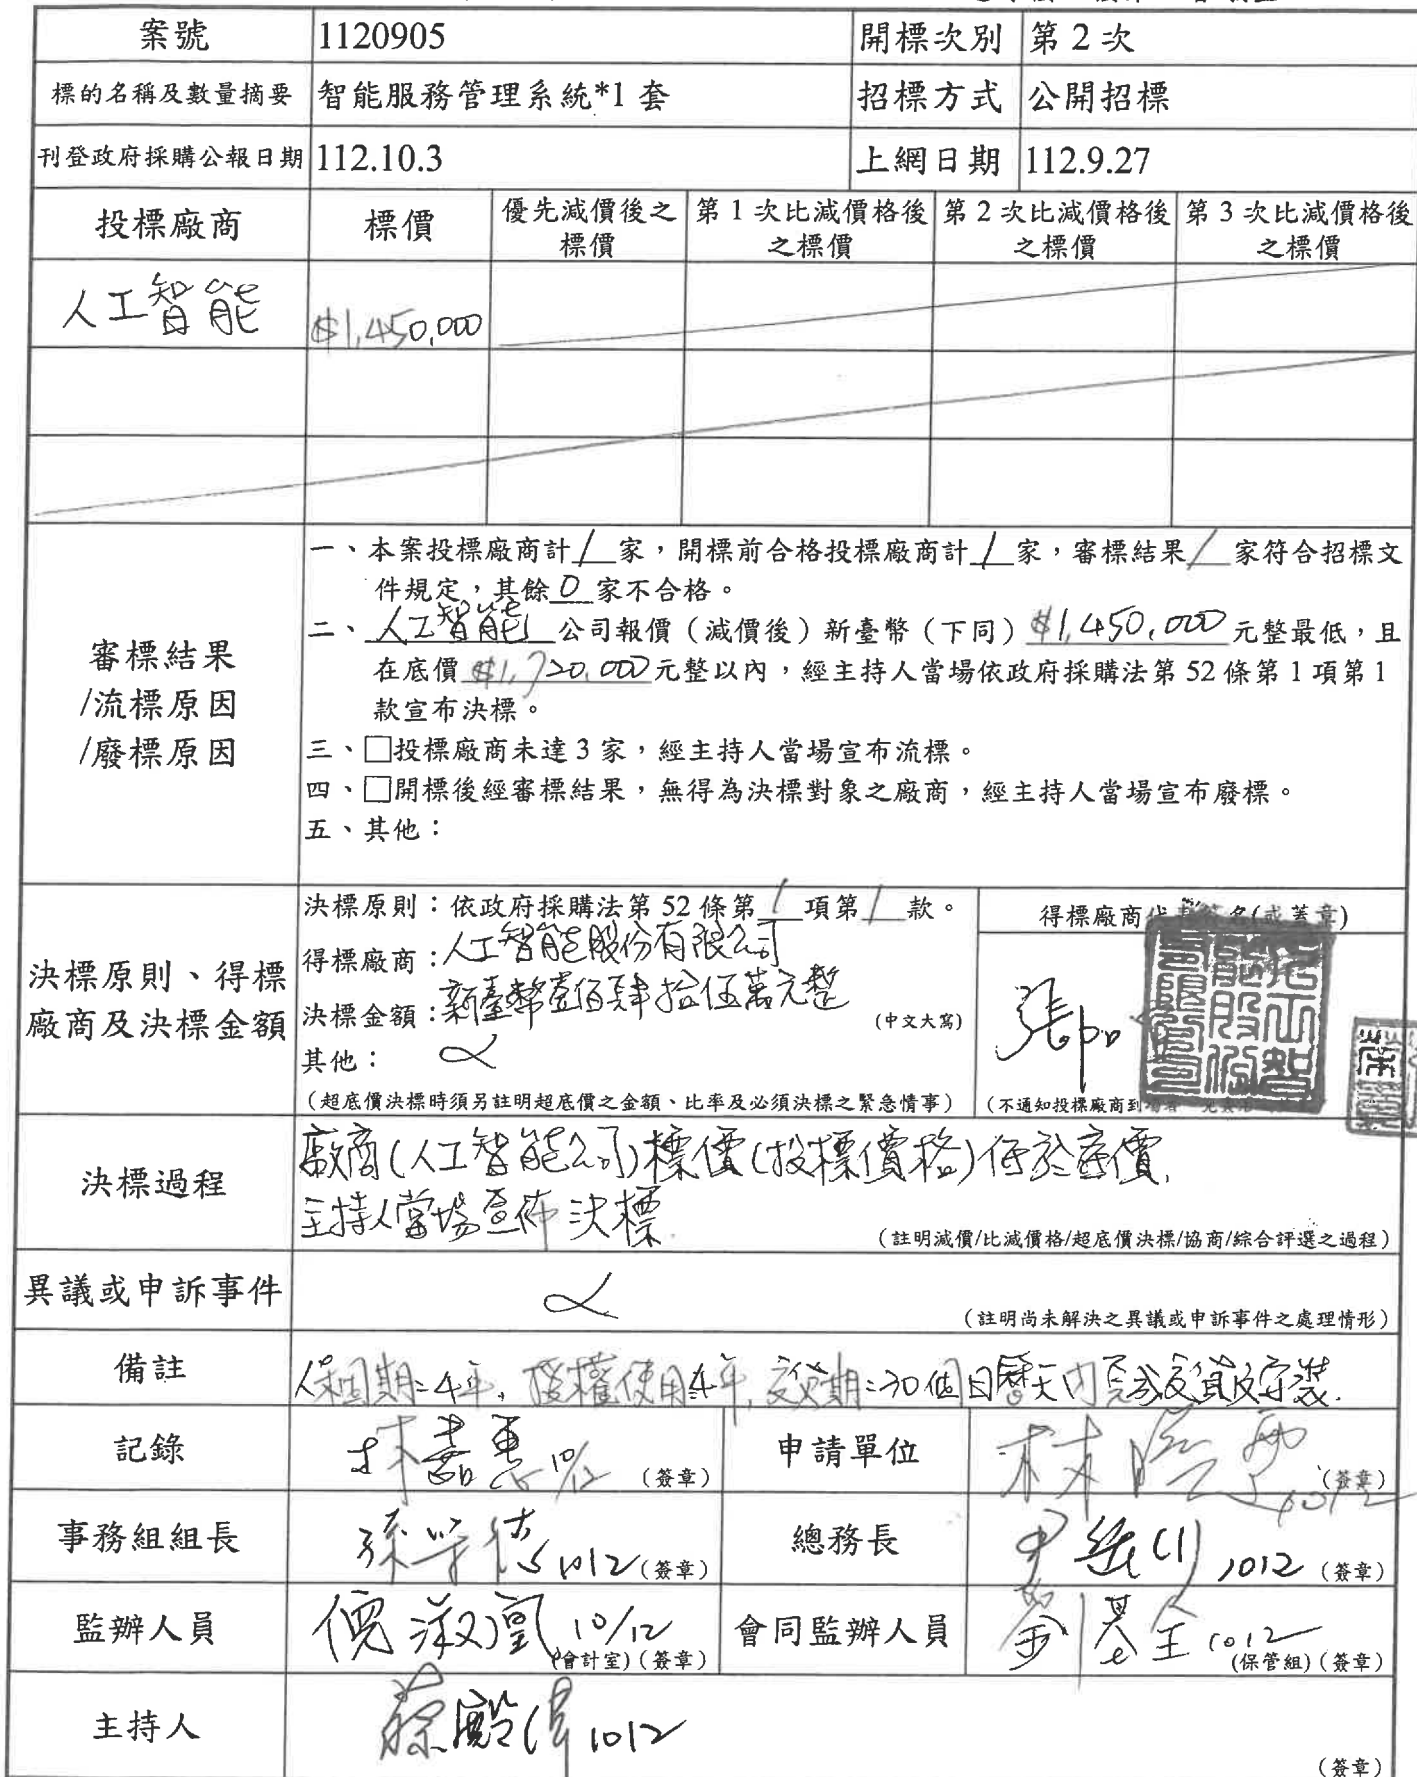 案號 1120905 開標次別 第 2 次
標的名稱及數量摘要 智能服務管理系統*1 套 招標方式 公開招標
刊登政府採購公報日期 112.10.3 上網日期 112.9.27
投標廠商 標價 優先減價後之標價 第 1 次比減價格後之標價 第 2 次比減價格後之標價 第 3 次比減價格後之標價
人工智能 $1,450,000
審標結果
/流標原因
/廢標原因
一、本案投標廠商計 1 家,開標前合格投標廠商計 1 家,審標結果 1 家符合招標文
件規定,其餘 0 家不合格。
二、人工智能 公司報價(減價後)新臺幣(下同) $1,450,000 元整最低,且
在底價 $1,720,000 元整以內,經主持人當場依政府採購法第 52 條第 1 項第 1
款宣布決標。
三、□投標廠商未達 3 家,經主持人當場宣布流標。
四、□開標後經審標結果,無得為決標對象之廠商,經主持人當場宣布廢標。
五、其他:
決標原則、得標
廠商及決標金額
決標原則:依政府採購法第 52 條第 1 項第 1 款。
得標廠商:人工智能股份有限公司
決標金額:新臺幣壹佰肆拾伍萬元整 (中文大寫)
其他:
(超底價決標時須另註明超底價之金額、比率及必須決標之緊急情事)
得標廠商代表簽名(或蓋章)
人工智能股份有限公司
(不通知投標廠商到場者
決標過程
廠商(人工智能公司)標價(投標價格)低於底價,
主持人當場宣佈決標
(註明減價/比減價格/超底價決標/協商/綜合評選之過程)
異議或申訴事件
(註明尚未解決之異議或申訴事件之處理情形)
備註 保固期=4年, 授權使用4年, 交貨期=30個日曆天內完成交貨及安裝.
記錄 10/12 (簽章) 申請單位 1012 (簽章)
事務組組長 1012 (簽章) 總務長 1012 (簽章)
監辦人員 倪淑凰 10/12 (會計室)(簽章) 會同監辦人員 劉基全 1012 (保管組)(簽章)
主持人 1012 (簽章)